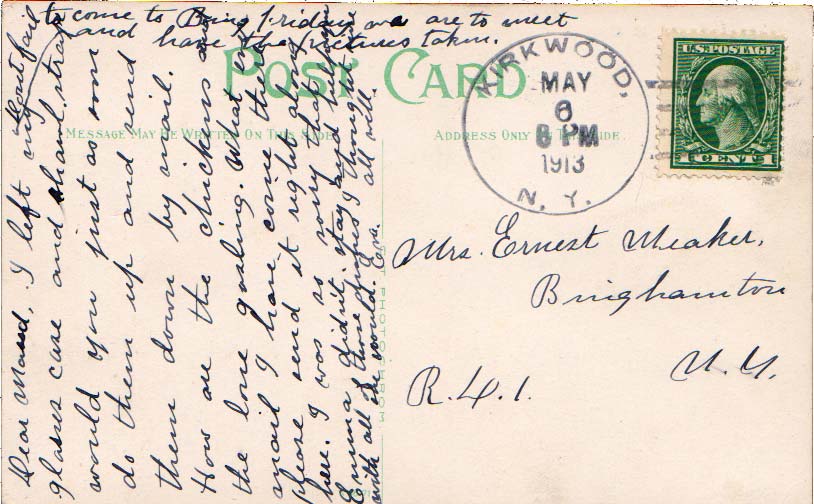 to come to Bing Friday we are to meet
and have the pictures taken.
POST CARD
MESSAGE MAY BE WRITTEN ON THIS SIDE
ADDRESS ONLY THIS SIDE.
KIRKWOOD,
MAY
6
8 PM
1913
N. Y.
U.S. POSTAGE
1 CENT 1
Mrs. Ernest Meaker,
Binghamton
R.4.1. N.Y.
Dear Maud, I left my
glasses case and shawl strap
would you just as soon
do them up and send
them down by mail.
How are the chickens and
the lone gosling. What
mail I have come there
please send it right along
here. I was so sorry that
Emma didn't stay and help
with all those dishes I thought
she would. Eva. all well.
Dont fail